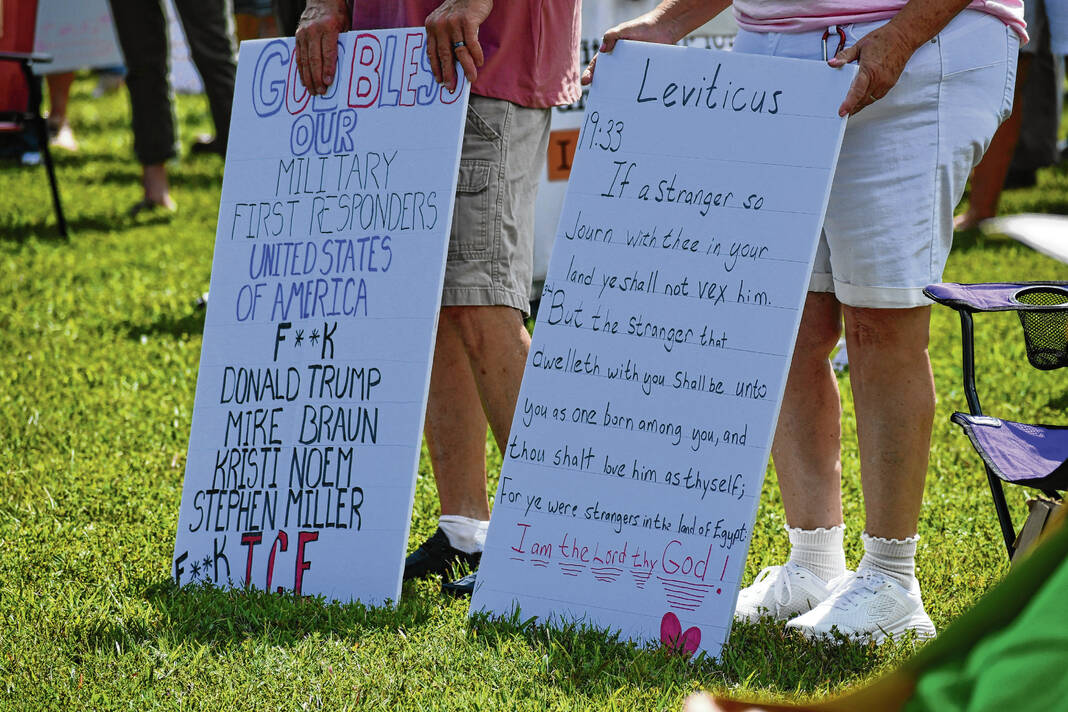 GOD BLESS
OUR
MILITARY
FIRST RESPONDERS
UNITED STATES
OF AMERICA
F**K
DONALD TRUMP
MIKE BRAUN
KRISTI NOEM
STEPHEN MILLER
F**K ICE
Leviticus
19:33
If a stranger so
Journ with thee in your
land ye shall not vex him.
34 But the stranger that
dwelleth with you shall be unto
you as one born among you, and
thou shalt love him as thyself;
For ye were strangers in the land of Egypt:
I am the Lord thy God!